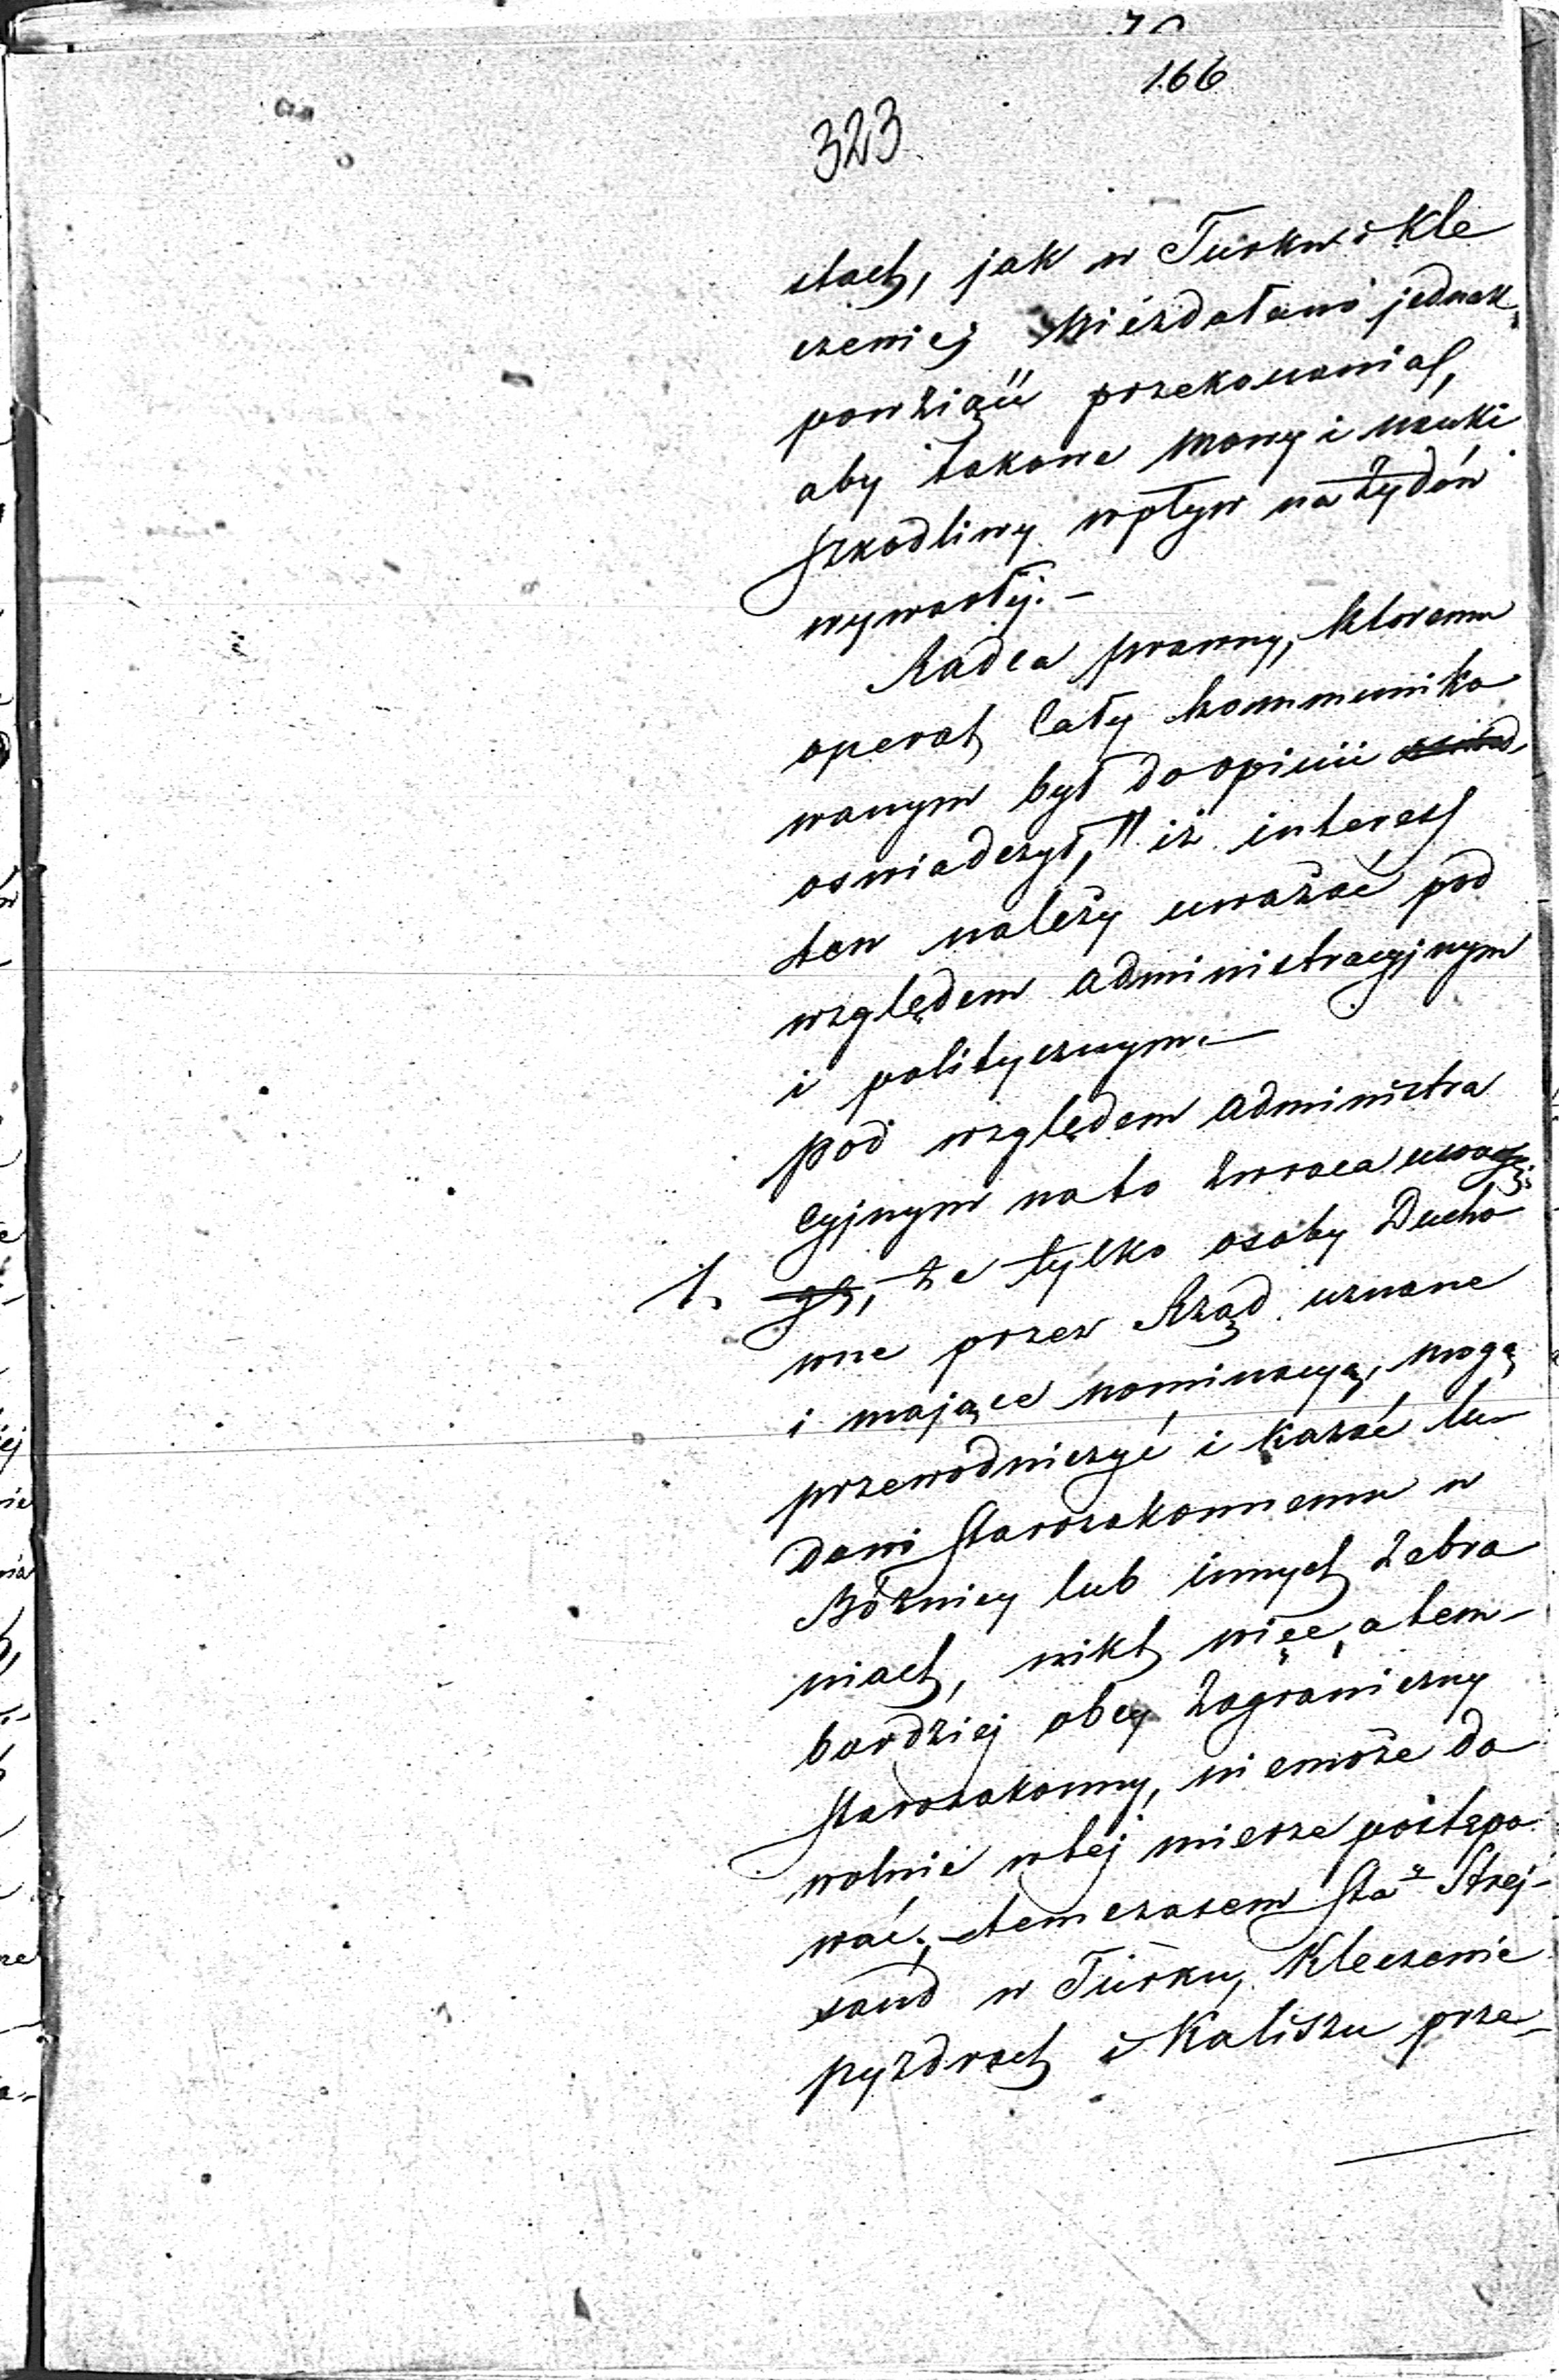 166
323
stach, jak w Turku i Kle
czewiej Niezdołano jednak
powziąść przekonania,
aby takowe mowy i nauki
szkodliwy wpływ na Żydów
wywarły. –
Radca prawny, ktoremu
operat cały kommuniko
wanym był do opinii
oswiadczył, "iż interess
ten należy uważać pod
względem administracyjnym
i politycznym. –
pod względem administra
cyjnym na to zwraca uwagę:
1. że tylko osoby Ducho
wne przez Rząd uznane
i mające nominacyą, mogą
przewodniczyć i kazać lu-
dowi starozakonnemu w
Bóżnicy lub innych zebra
niach, nikt więc, a tem-
bardziej obcy zagraniczny
starozakonny, niemoże do
wolnie w tej mierze postępo
wać, – temczasem Sta Strej-
sand w Turku, Kleczewie
pyzdrach i Kaliszu prze-